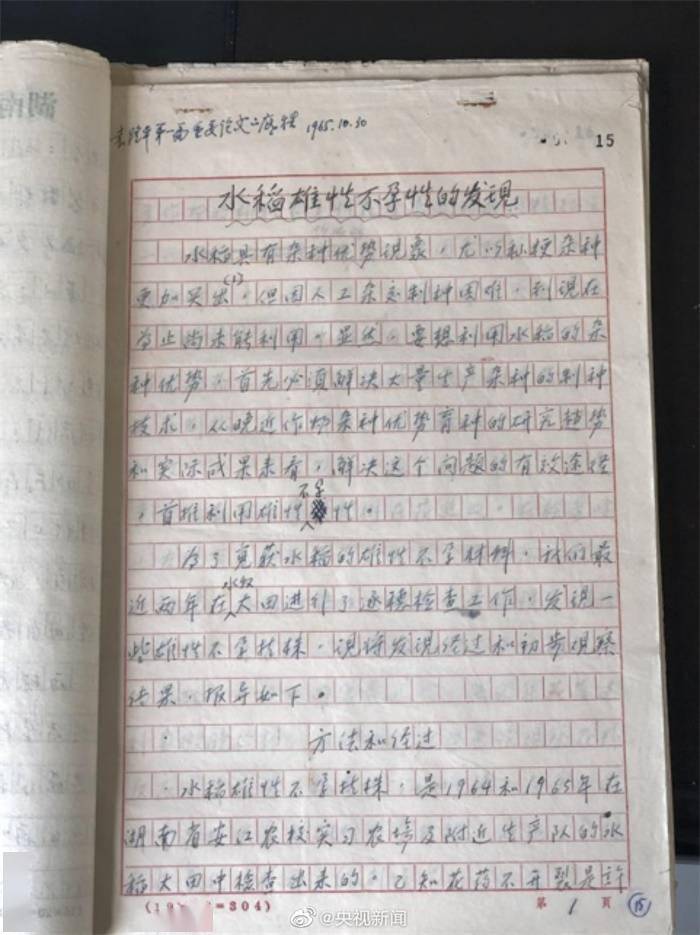 湖南
袁隆平第一篇重要论文之底稿 1965.10.30
15
水稻雄性不孕性的发现
水稻具有杂种优势现象，尤以籼粳杂种
更加突出(1)，但因人工杂交制种困难，到现在
为止尚未能利用。显然，要想利用水稻的杂
种优势，首先必须解决大量生产杂种的制种
技术，从晚近作物杂种优势育种的研究趋势
和实际成果来看，解决这个问题的有效途径
，首推利用雄性不孕性。
为了觅获水稻的雄性不孕材料，我们最
近两年在水稻大田进行了逐穗检查工作，发现一
些雄性不孕植株，现将发现经过和初步观察
结果，报导如下。
方法和经过
水稻雄性不孕植株，是1964和1965年在
湖南省安江农校实习农场及附近生产队的水
稻大田中检查出来的。已知花药不开裂是許
=304)
第 1 页
15
@央视新闻